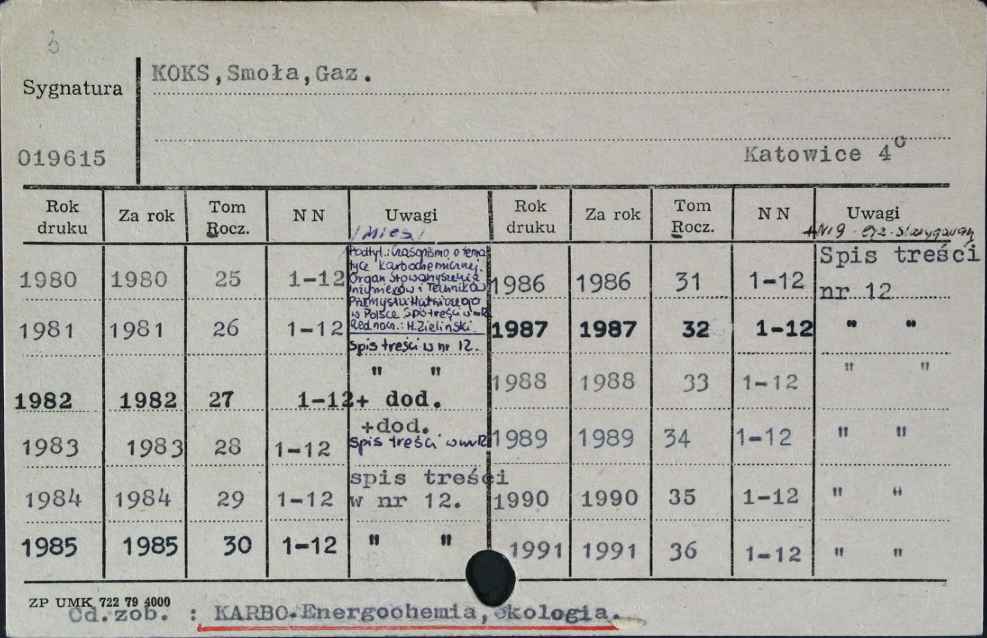 KOKS, Smoła, Gaz.
Sygnatura
019615
Katowice 4°
Rok druku Za rok Tom Rocz. N N Uwagi Rok druku Za rok Tom Rocz. N N Uwagi
/Mies/
1980 1980 25 1-12
Podtyt.: Czasopismo o tema
tyce karbochemicznej.
Organ Stowarzyszenia
Inżynierów i Techników
Przemysłu Hutniczego
w Polsce Spis treści w nr 12
Red. nacz.: H. Zieliński.
1986 1986 31 1-12 Spis treści
nr 12
1981 1981 26 1-12 Spis treści w nr 12.
1987 1987 32 1-12 " "
" "
1982 1982 27 1-12 + dod.
1988 1988 33 1-12 " "
1983 1983 28 1-12 +dod.
Spis treści w nr 12
1989 1989 34 1-12 " "
1984 1984 29 1-12 spis treści
w nr 12.
1990 1990 35 1-12 " "
1985 1985 30 1-12 " "
1991 1991 36 1-12 " "
ZP UMK 722 79 4000
Cd. zob. : KARBO-Energochemia, ekologia.